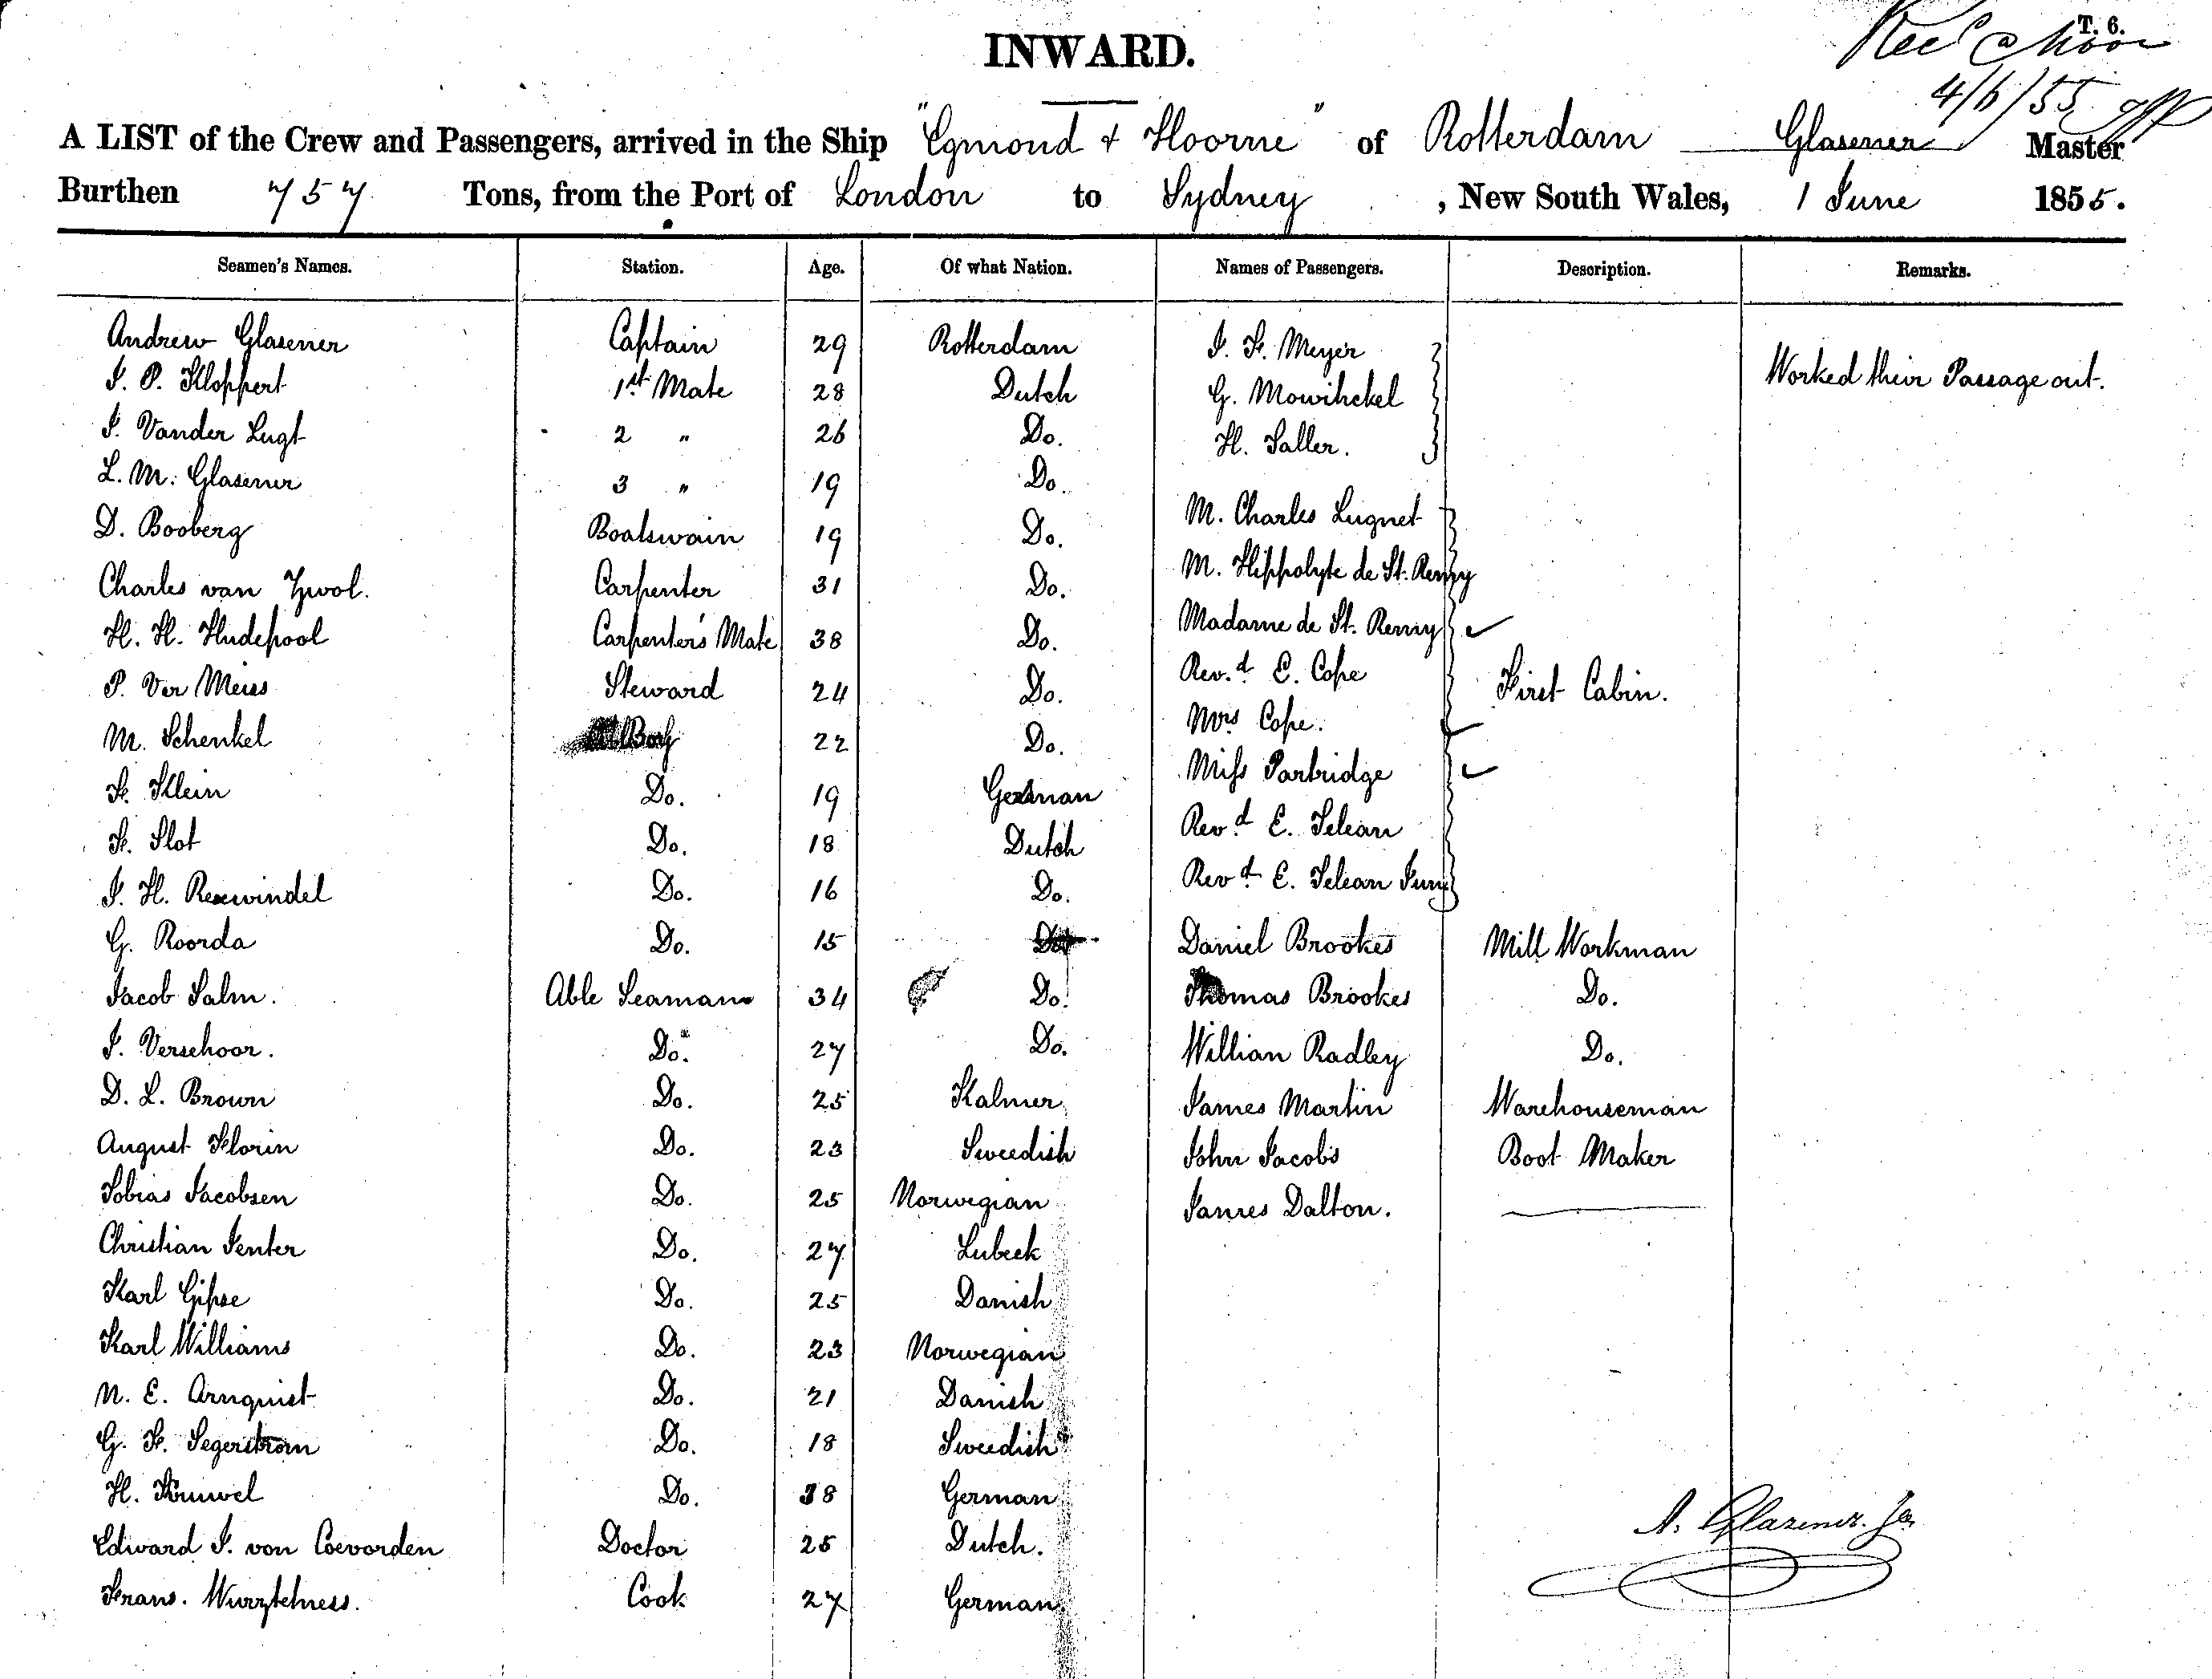 INWARD.
T. 6.
Rec'd @ Noon
4/6/55
A LIST of the Crew and Passengers, arrived in the Ship "Egmond & Hoorne" of Rotterdam Glasener Master
Burthen 757 Tons, from the Port of London to Sydney, New South Wales, 1 June 1855.
Seamen's Names. Station. Age. Of what Nation. Names of Passengers. Description. Remarks.
Andrew Glasener Captain 29 Rotterdam J. F. Meyer
J. P. Kloppert 1st Mate 28 Dutch G. Mowihckel Worked their Passage out.
J. Vander Lugt 2 " 26 Do. H. Saller.
L. M. Glasener 3 " 19 Do.
D. Booberg Boatswain 19 Do. M. Charles Lugnet
Charles van Zwol. Carpenter 31 Do. M. Hippolyte de St. Remy
H. H. Hudepool Carpenter's Mate 38 Do. Madame de St. Remy
P. Ver Meiss Steward 24 Do. Revd. C. Cope First Cabin.
M. Schenkel Boy 22 Do. Mrs Cope.
F. Klein Do. 19 German Miss Partridge
F. Slot Do. 18 Dutch Revd. E. Selean
J. H. Rexwindel Do. 16 Do. Revd. E. Selean Junr
G. Roorda Do. 15 Do. Daniel Brookes Mill Workman
Jacob Salm. Able Seaman 34 Do. Thomas Brookes Do.
J. Verschoor. Do. 27 Do. Willian Radley Do.
D. L. Brown Do. 25 Kalmer James Martin Warehouseman
August Florin Do. 23 Sweedish John Jacobs Boot Maker
Tobias Jacobsen Do. 25 Norwegian James Dalton.
Christian Jenter Do. 27 Lubeck
Karl Gipse Do. 25 Danish
Karl Williams Do. 23 Norwegian
N. E. Arnquist Do. 21 Danish
G. F. Segerstrom Do. 18 Sweedish
H. Kruwel Do. 38 German
Edward J. von Coevorden Doctor 25 Dutch.
Frans. Wurztelness. Cook 27 German
A. Glazener. Jr.